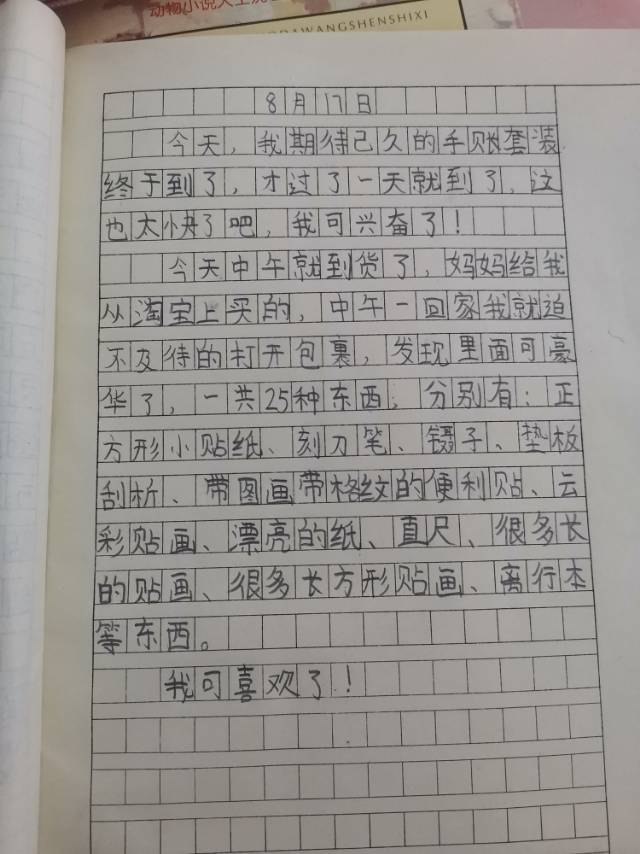 动物小说大王沈
DAWANGSHENSHIXI
8月17日
今天，我期待己久的手账套装
终于到了，才过了一天就到了，这
也太快了吧，我可兴奋了！
今天中午就到货了，妈妈给我
从淘宝上买的，中午一回家我就迫
不及待的打开包裹，发现里面可豪
华了，一共25种东西，分别有：正
方形小贴纸、刻刀笔、镊子、垫板
刮析、带图画带格纹的便利贴、云
彩贴画、漂亮的纸、直尺、很多长
的贴画、很多长方形贴画、离行本
等东西。
我可喜欢了！